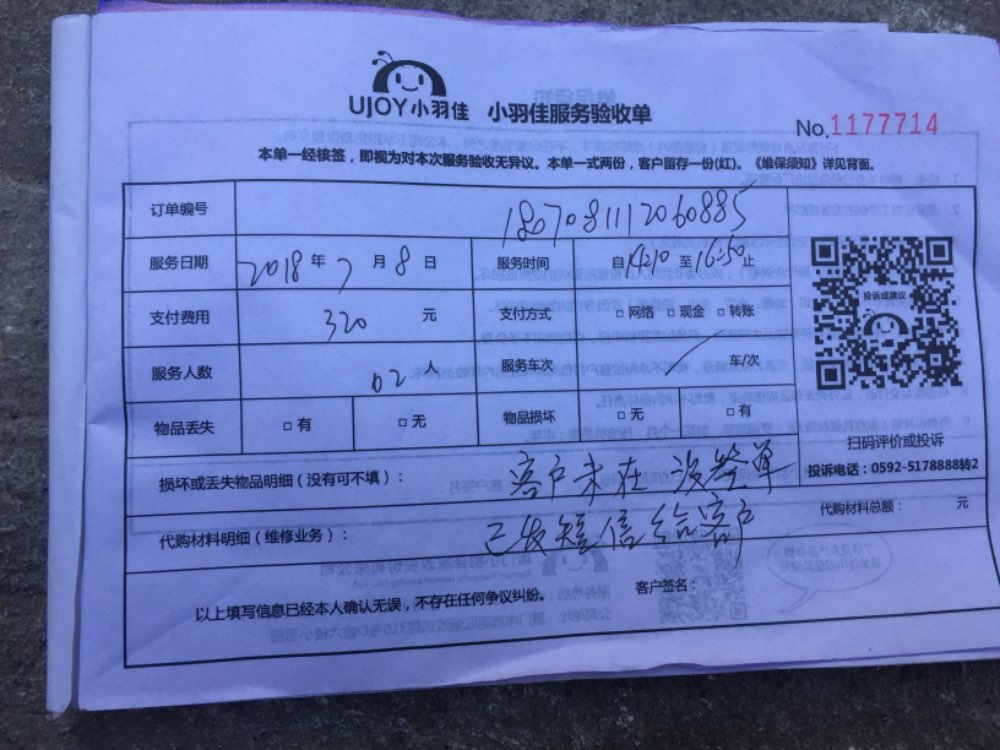 UJOY小羽佳 小羽佳服务验收单
No.1177714
本单一经核签，即视为对本次服务验收无异议。本单一式两份，客户留存一份(红)。《维保须知》详见背面。
订单编号 1807081112060885
服务日期 2018年7月8日 服务时间 自14:10至16:50止
支付费用 320元 支付方式 □网络 □现金 □转账
投诉或建议
服务人数 02人 服务车次 / 车/次
物品丢失 □有 □无 物品损坏 □无 □有
扫码评价或投诉
投诉电话：0592-5178888转2
损坏或丢失物品明细（没有可不填）： 客户未在 没签单
代购材料明细（维修业务）： 已发短信给客户
代购材料总额： 元
以上填写信息已经本人确认无误，不存在任何争议纠纷。 客户签名：